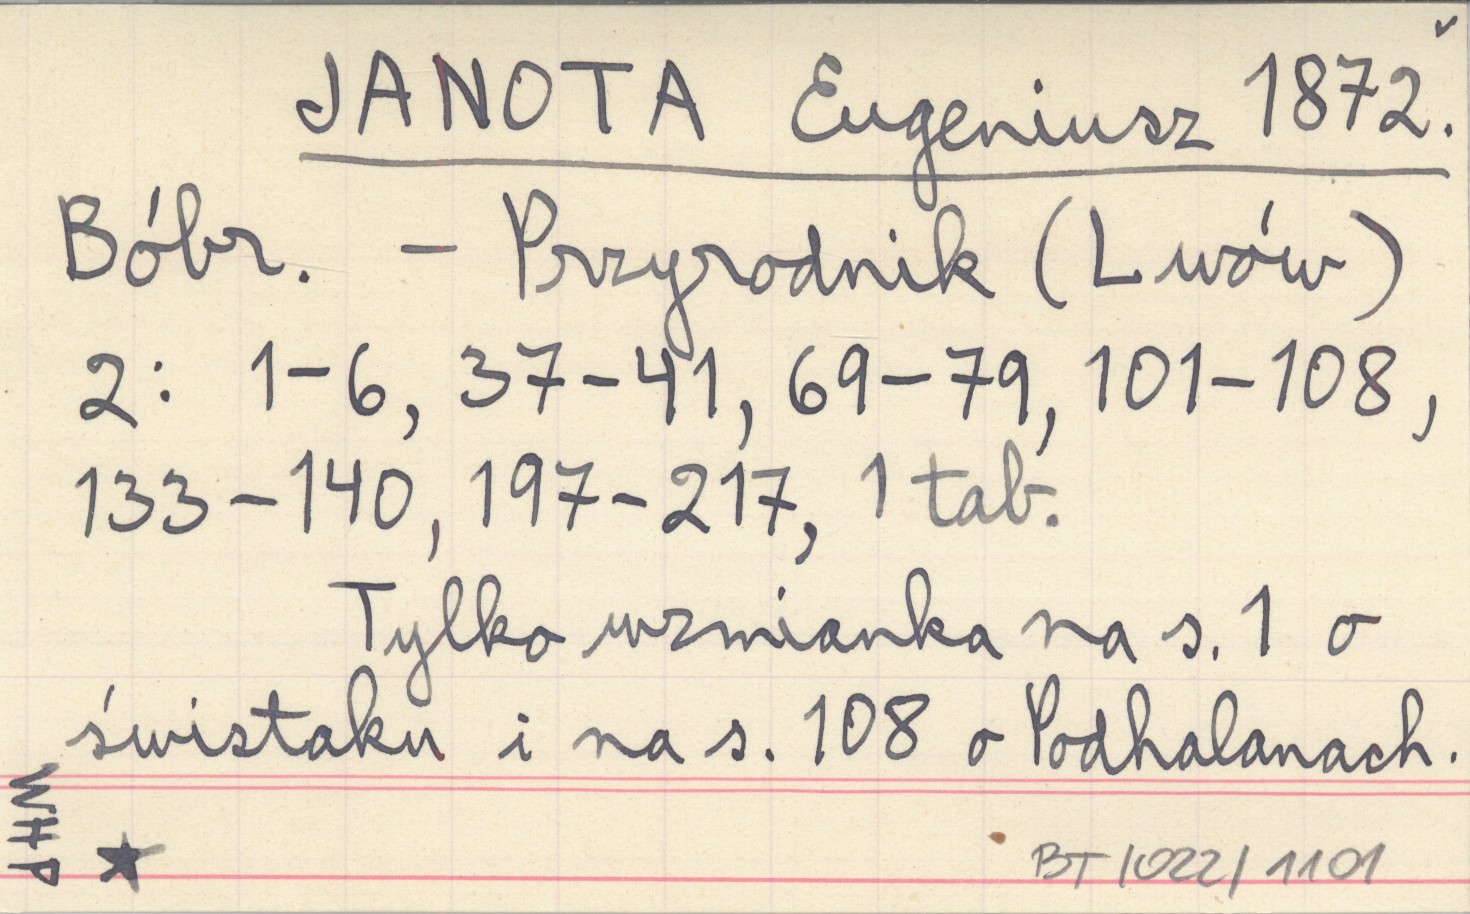 JANOTA Eugeniusz 1872.
Bóbr. – Przyrodnik (Lwów)
2: 1–6, 37–41, 69–79, 101–108,
133–140, 197–217, 1 tab.
Tylko wzmianka na s. 1 o
świstaku i na s. 108 o Podhalanach.
WHP
BT/022/1101